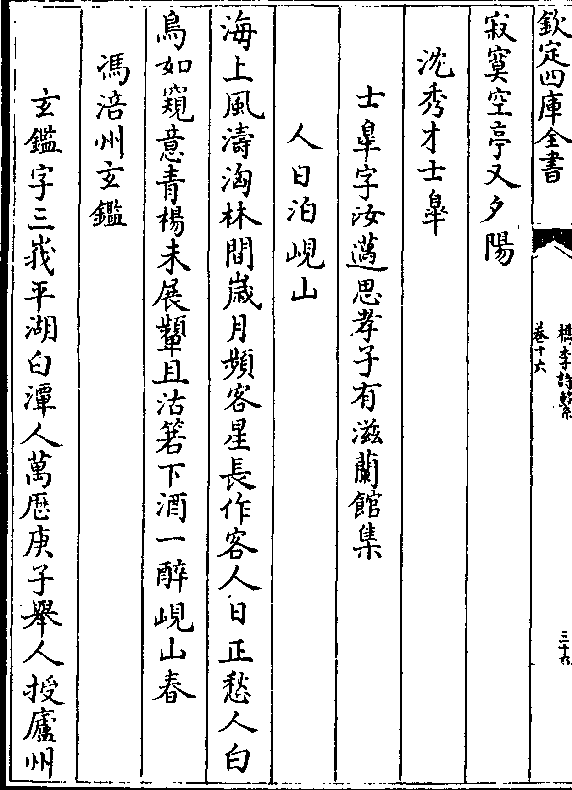 欽定四庫全書
檇李詩繫
卷十六
三十六
寂寞空亭又夕陽
沈秀才士皐
士皐字汝邁思孝子有滋蘭館集
人日泊峴山
海上風濤洶林間嵗月頻客星長作客人日正愁人白
鳥如窺意青楊未展顰且沽箬下酒一醉峴山春
馮涪州玄鑑
玄鑑字三峩平湖白潭人萬厯庚子舉人授廬州